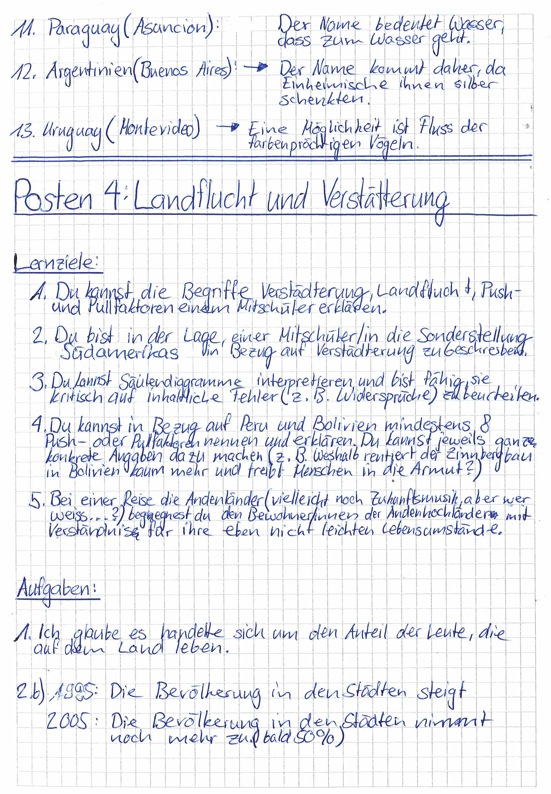 11. Paraguay (Asuncion): Der Name bedeutet Wasser,
dass zum Wasser geht.
12. Argentinien (Buenos Aires): → Der Name kommt daher, da
Einheimische ihnen silber
schenkten.
13. Uruguay (Montevideo) → Eine Möglichkeit ist Fluss der
farbenprächtigen Vögeln.
Posten 4: Landflucht und Verstätterung
Lernziele:
1. Du kannst die Begriffe Verstädterung, Landflucht, Push-
und Pullfaktoren einem Mitschüler erklären.
2. Du bist in der Lage, einer Mitschüler/in die Sonderstellung
Südamerikas in Bezug auf Verstädterung zu beschreiben.
3. Du kannst Säulendiagramme interpretieren und bist fähig, sie
kritisch auf inhaltliche Fehler (z. B. Widersprüche) zu beurteilen.
4. Du kannst in Bezug auf Peru und Bolivien mindestens 8
Push- oder Pullfaktoren nennen und erklären. Du kannst jeweils ganz
konkrete Angaben dazu machen (z. B. Weshalb rentiert der Zinnbergbau
in Bolivien kaum mehr und treibt Menschen in die Armut?)
5. Bei einer Reise die Andenländer (vielleicht noch Zukunftsmusik, aber wer
weiss...?) begegnest du den Bewohner/innen der Andenhochländern mit
Verständnis für ihre eben nicht leichten Lebensumstände.
Aufgaben:
1. Ich glaube es handelte sich um den Anteil der Leute, die
auf dem Land leben.
2.b) 1995: Die Bevölkerung in den Städten steigt
2005: Die Bevölkerung in den Städten nimmt
noch mehr zu. (bald 50%)